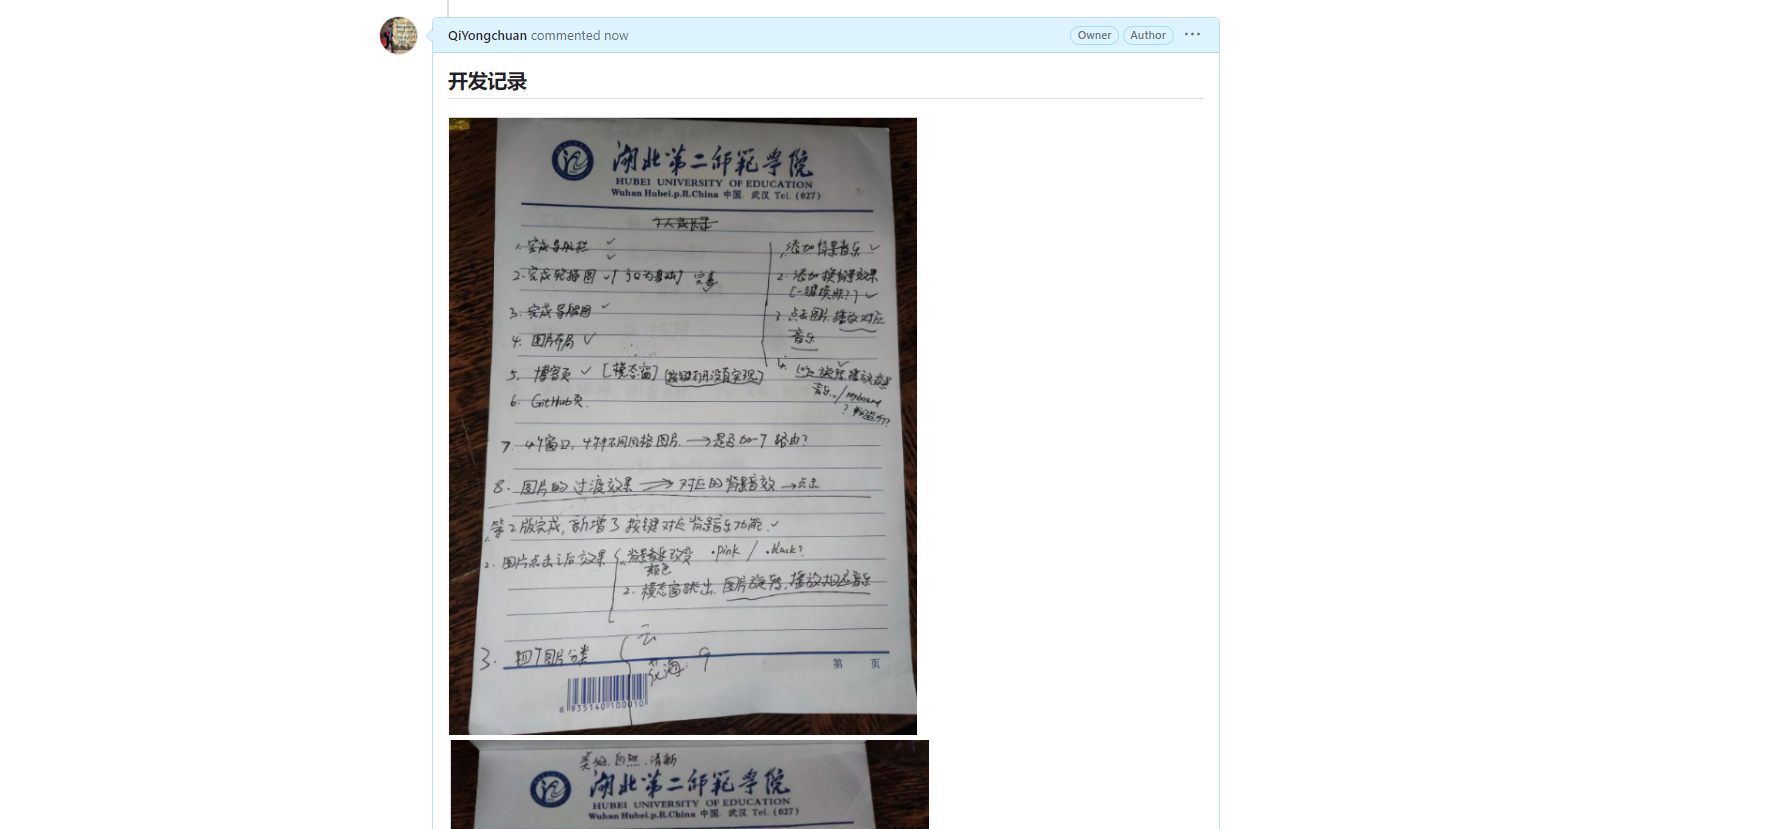 QiYongchuan commented now
Owner
Author
开发记录
湖北第二师范学院
HUBEI UNIVERSITY OF EDUCATION
Wuhan Hubei.p.R.China 中国. 武汉 Tel. (027)
个人成长录
1. 完成导航栏 ✓
✓
2. 完成轮播图 ✓ 完善
3. 完成导航图 ✓
4. 图片布局 ✓
5. 博客页 ✓ [模态窗] (按键打开没有实现)
6. GitHub页.
1. 添加背景音乐 ✓
2. 添加换背景效果
[一键换肤?] ✓
3. 点击图片, 播放对应
音乐
4. 旋转播放
音乐
7. 4个窗口, 4种不同风格图片. → 是否加一个路由?
8. 图片的过渡效果 → 对应的背景音效 → 点击
第2版完成, 新增了按键对应背景音乐功能. ✓
2. 图片点击之后效果 { 1. 背景音乐改变 ·pink / ·black?
颜色
2. 模态窗跳出, 图片旋转, 播放相应音乐
3. 四个图片分类 { 云
海
第 页
6 935140 100010
类细. 自然. 清新
湖北第二师范学院
HUBEI UNIVERSITY OF EDUCATION
Wuhan Hubei.p.R.China 中国. 武汉 Tel. (027)